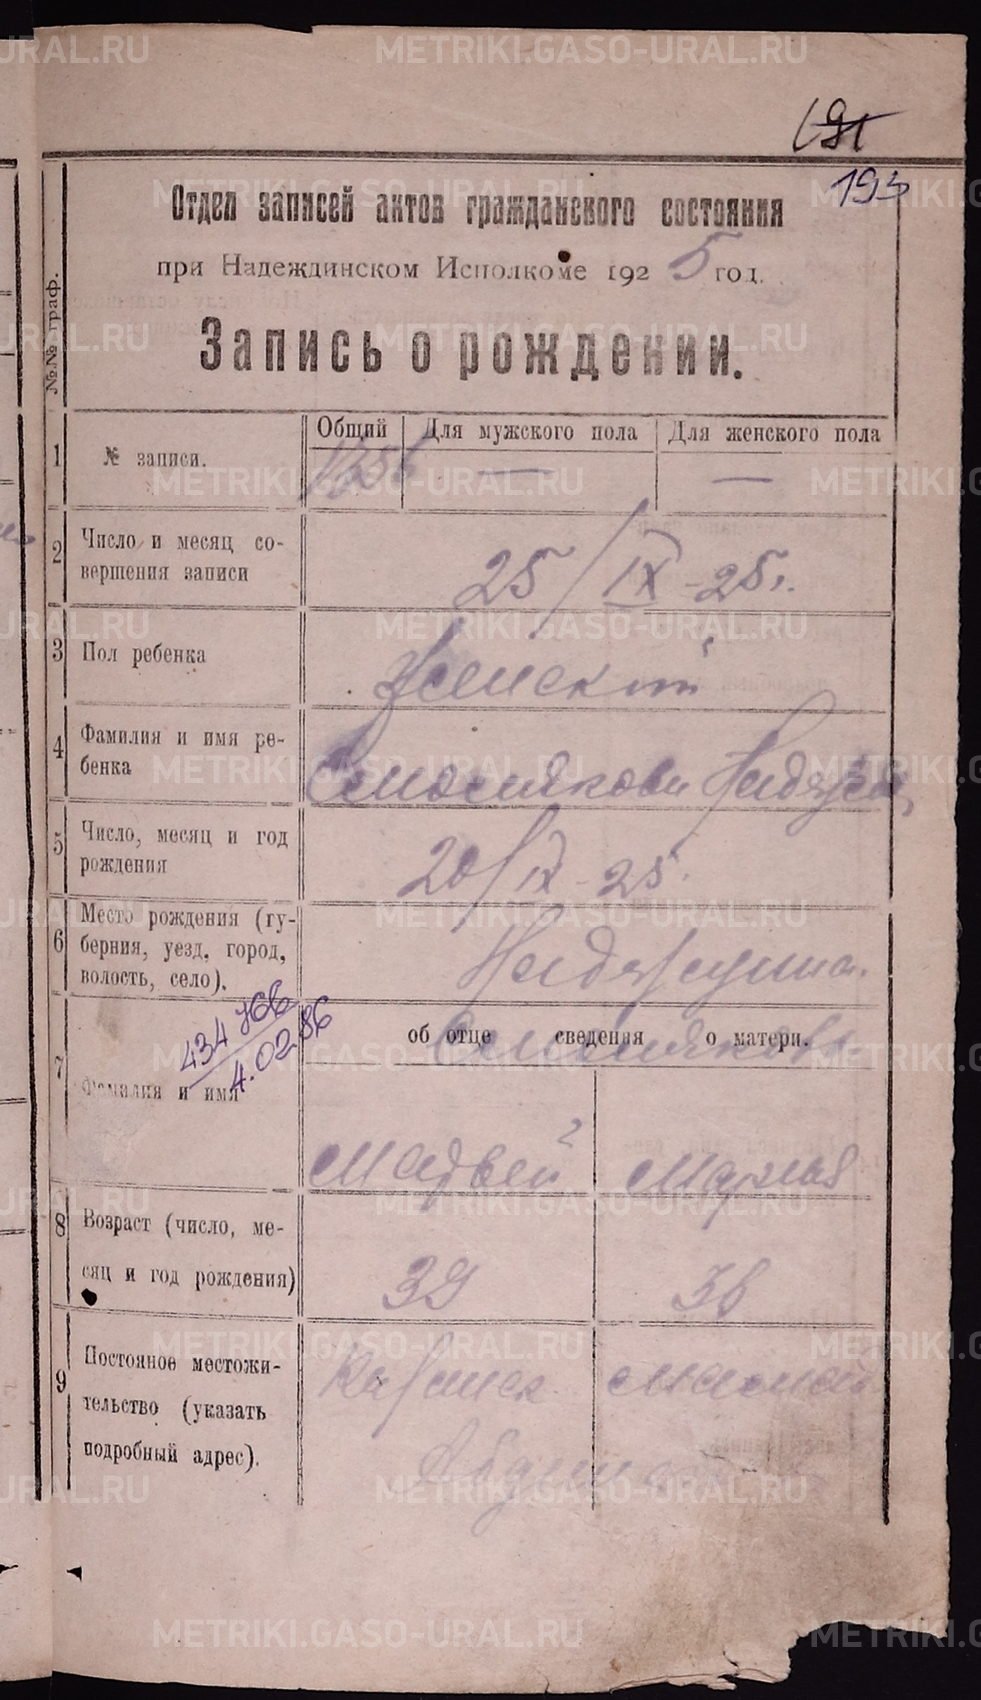 191
193
Отдел записей актов гражданского состояния
при Надеждинском Исполкоме 1925 год.
Запись о рождении.
№№ граф.
Общий Для мужского пола Для женского пола
1 № записи. 1256 — —
2 Число и месяц со-
вершения записи
25/IX-25г.
3 Пол ребенка Женский
4 Фамилия и имя ре-
бенка
Надежда
5 Число, месяц и год
рождения
20/IX-25.
6 Место рождения (гу-
берния, уезд, город,
волость, село).
434
4.02.86
об отце сведения о матери.
7 Фамилия и имя
Мадвей Мария
8 Возраст (число, ме-
сяц и год рождения)
39 36
9 Постояное местожи-
тельство (указать
подробный адрес).
METRIKI.GASO-URAL.RU